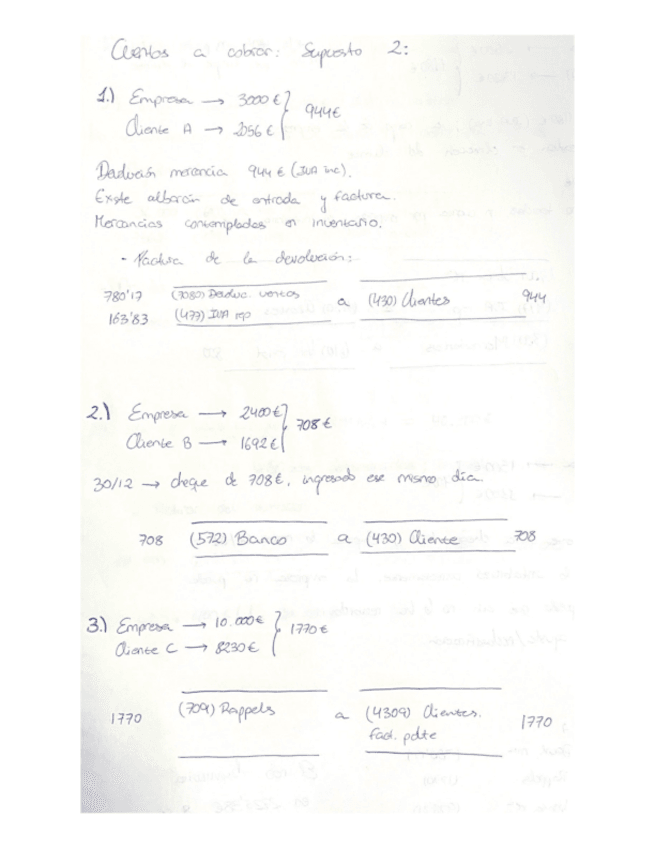 Cuentas a cobrar: Supuesto 2:
1.) Empresa → 3000 € } 944 €
Cliente A → 2056 €
Devolución mercancia 944 € (IVA inc).
Existe albarán de entrada y factura.
Mercancias contempladas en inventario.
- Factura de la devolución:
780'17 (7080) Devoluc. ventas a (430) Clientes 944
163'83 (477) IVA rep
2.) Empresa → 2400 € } 708 €
Cliente B → 1692 €
30/12 → cheque de 708 €, ingresado ese mismo día.
708 (572) Banco a (430) Cliente 708
3.) Empresa → 10.000 € } 1770 €
Cliente C → 8230 €
1770 (709) Rappels a (4309) Clientes. 1770
fact. pdte